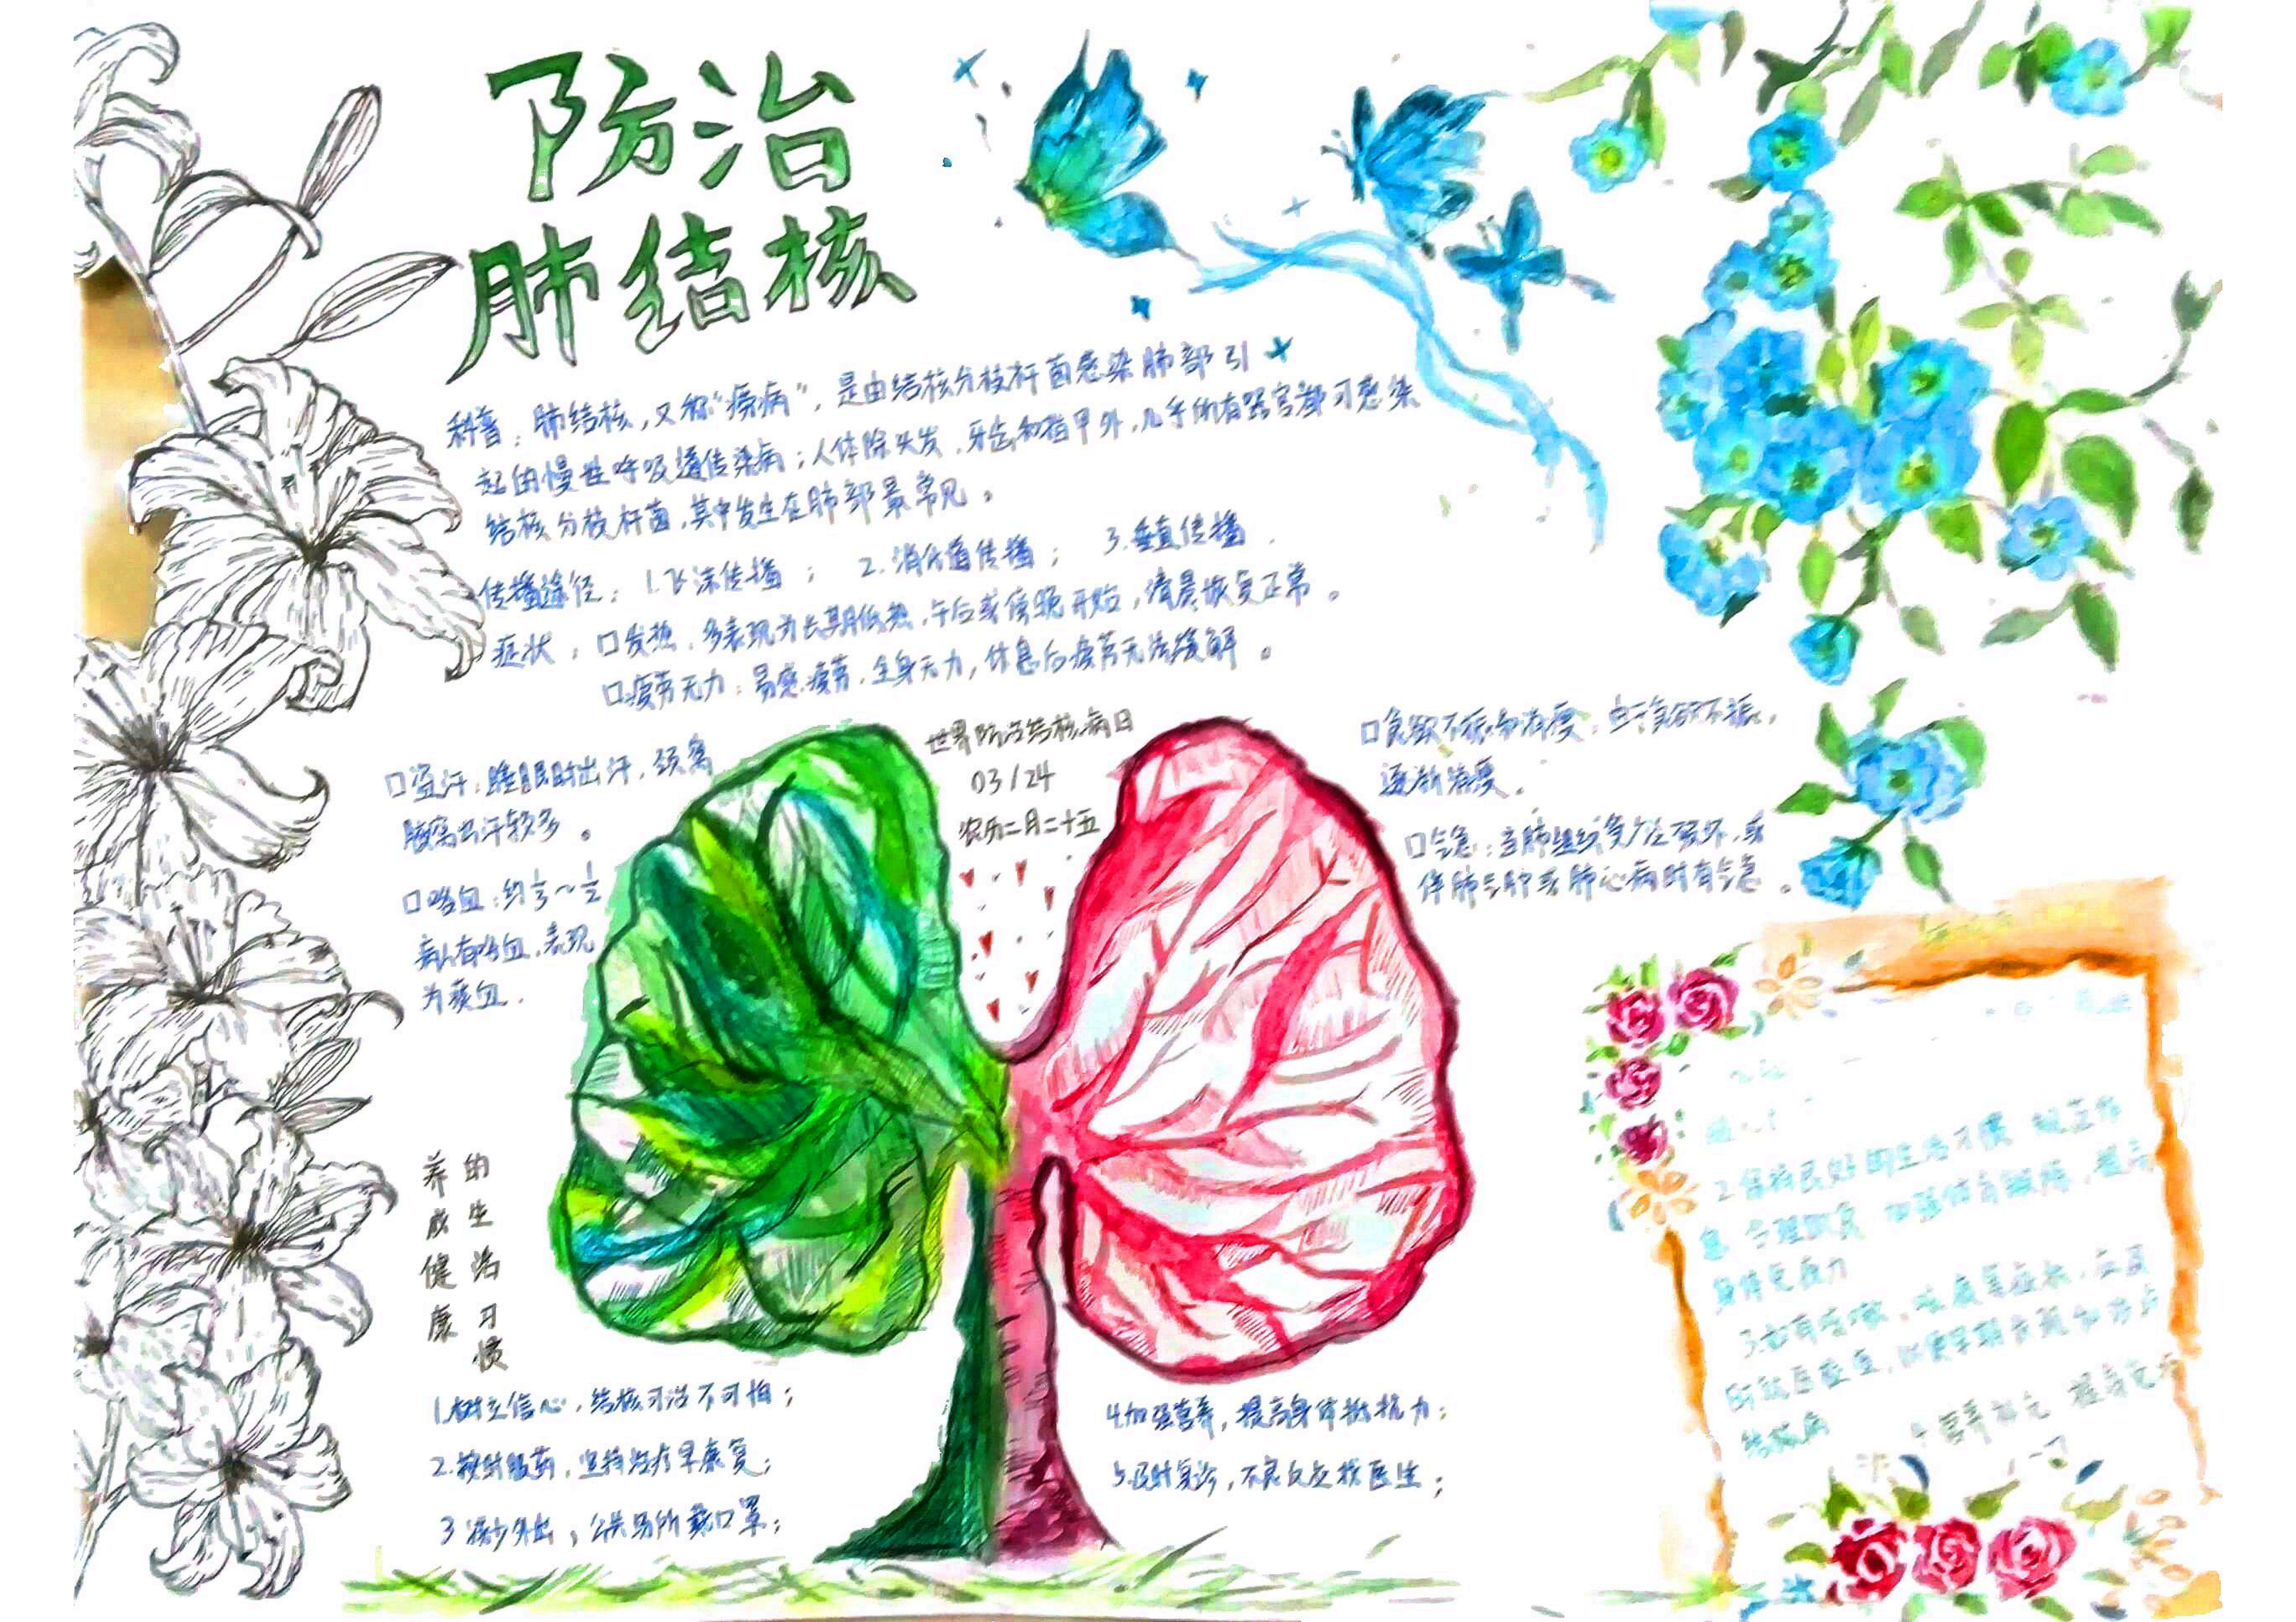 防治
肺结核
科普：肺结核，又称“痨病”，是由结核分枝杆菌感染肺部引
起的慢性呼吸道传染病；人体除头发、牙齿和指甲外，几乎所有器官都可感染
结核分枝杆菌，其中发生在肺部最常见。
传播途径：1.飞沫传播； 2.消化道传播； 3.垂直传播
症状：口发热：多表现为长期低热，午后或傍晚开始，清晨恢复正常。
口疲劳无力：易感疲劳，全身无力，休息后疲劳无法缓解。
世界防治结核病日
03/24
农历二月二十五
口盗汗：睡眠时出汗，颈窝
腋窝出汗较多。
口咯血：约1/3～1/2
病人有咯血，表现
为痰血.
口食欲不振和消瘦：由于食欲不振，
逐渐消瘦。
口气急：当肺组织多处破坏，或
伴肺气肿或肺心病时有气急。
养成健康
的生活习惯
1.树立信心，结核可治不可怕；
2.按时服药，坚持治疗早康复；
3减少外出，公共场所戴口罩；
4.加强营养，提高身体抵抗力；
5.及时复诊，不良反应找医生；
2.保持良好的生活习惯
息 合理饮食 加强体育锻炼，提高
身体免疫力
3.如有咳嗽、咳痰等症状，应及
时就医检查，以便早期发现和治疗
结核病